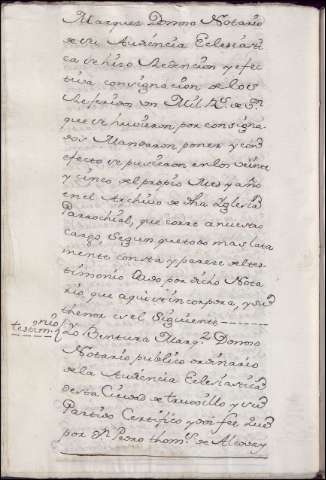 Marquez Donoso Notario
de su Audiencia Eclesiasti
ca se hizo Redencion y efec
tiva consignacion de los
referidos un Mil Rs. de Pn.
que se huvieron por consigna
dos Mandaron, poner y con
efecto se pusieron en los veinte
y cinco del propio Mes y año
en el Archivo de dha Iglesia
Parrochial, que corre a nuestro
cargo Segun que todo mas lata
mente consta y parece del tes
timonio dado por dicho Nota
rio, que aqui se incorpora, y su
thenor es el Siguiente
testimonio Yo Bentura Marqz. Donoso
Notario publico ordinario
de la Audiencia Eclesiastica
desta Ciudad de truxillo y su
Partido Certifico y doi fee que
por Dn. Pedro thoms. de